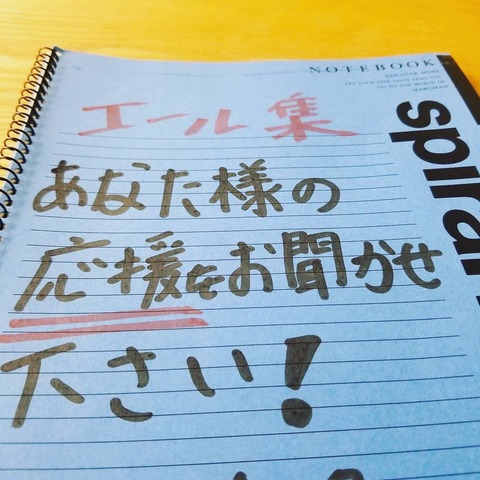 NOTEBOOK
spiral
エール集
あなた様の
応援をお聞かせ
下さい!